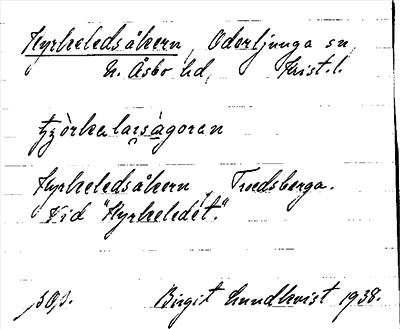 Kyrkeledsåkern, Oderljunga sn,
N. Åsbo hd, Krist. l.
Kyrkeledsåkern, Truedsberga.
Vid "Kyrkeledet."
Birgit Lundkvist 1938.